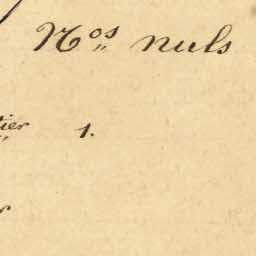 Nos nuls
tier 1.